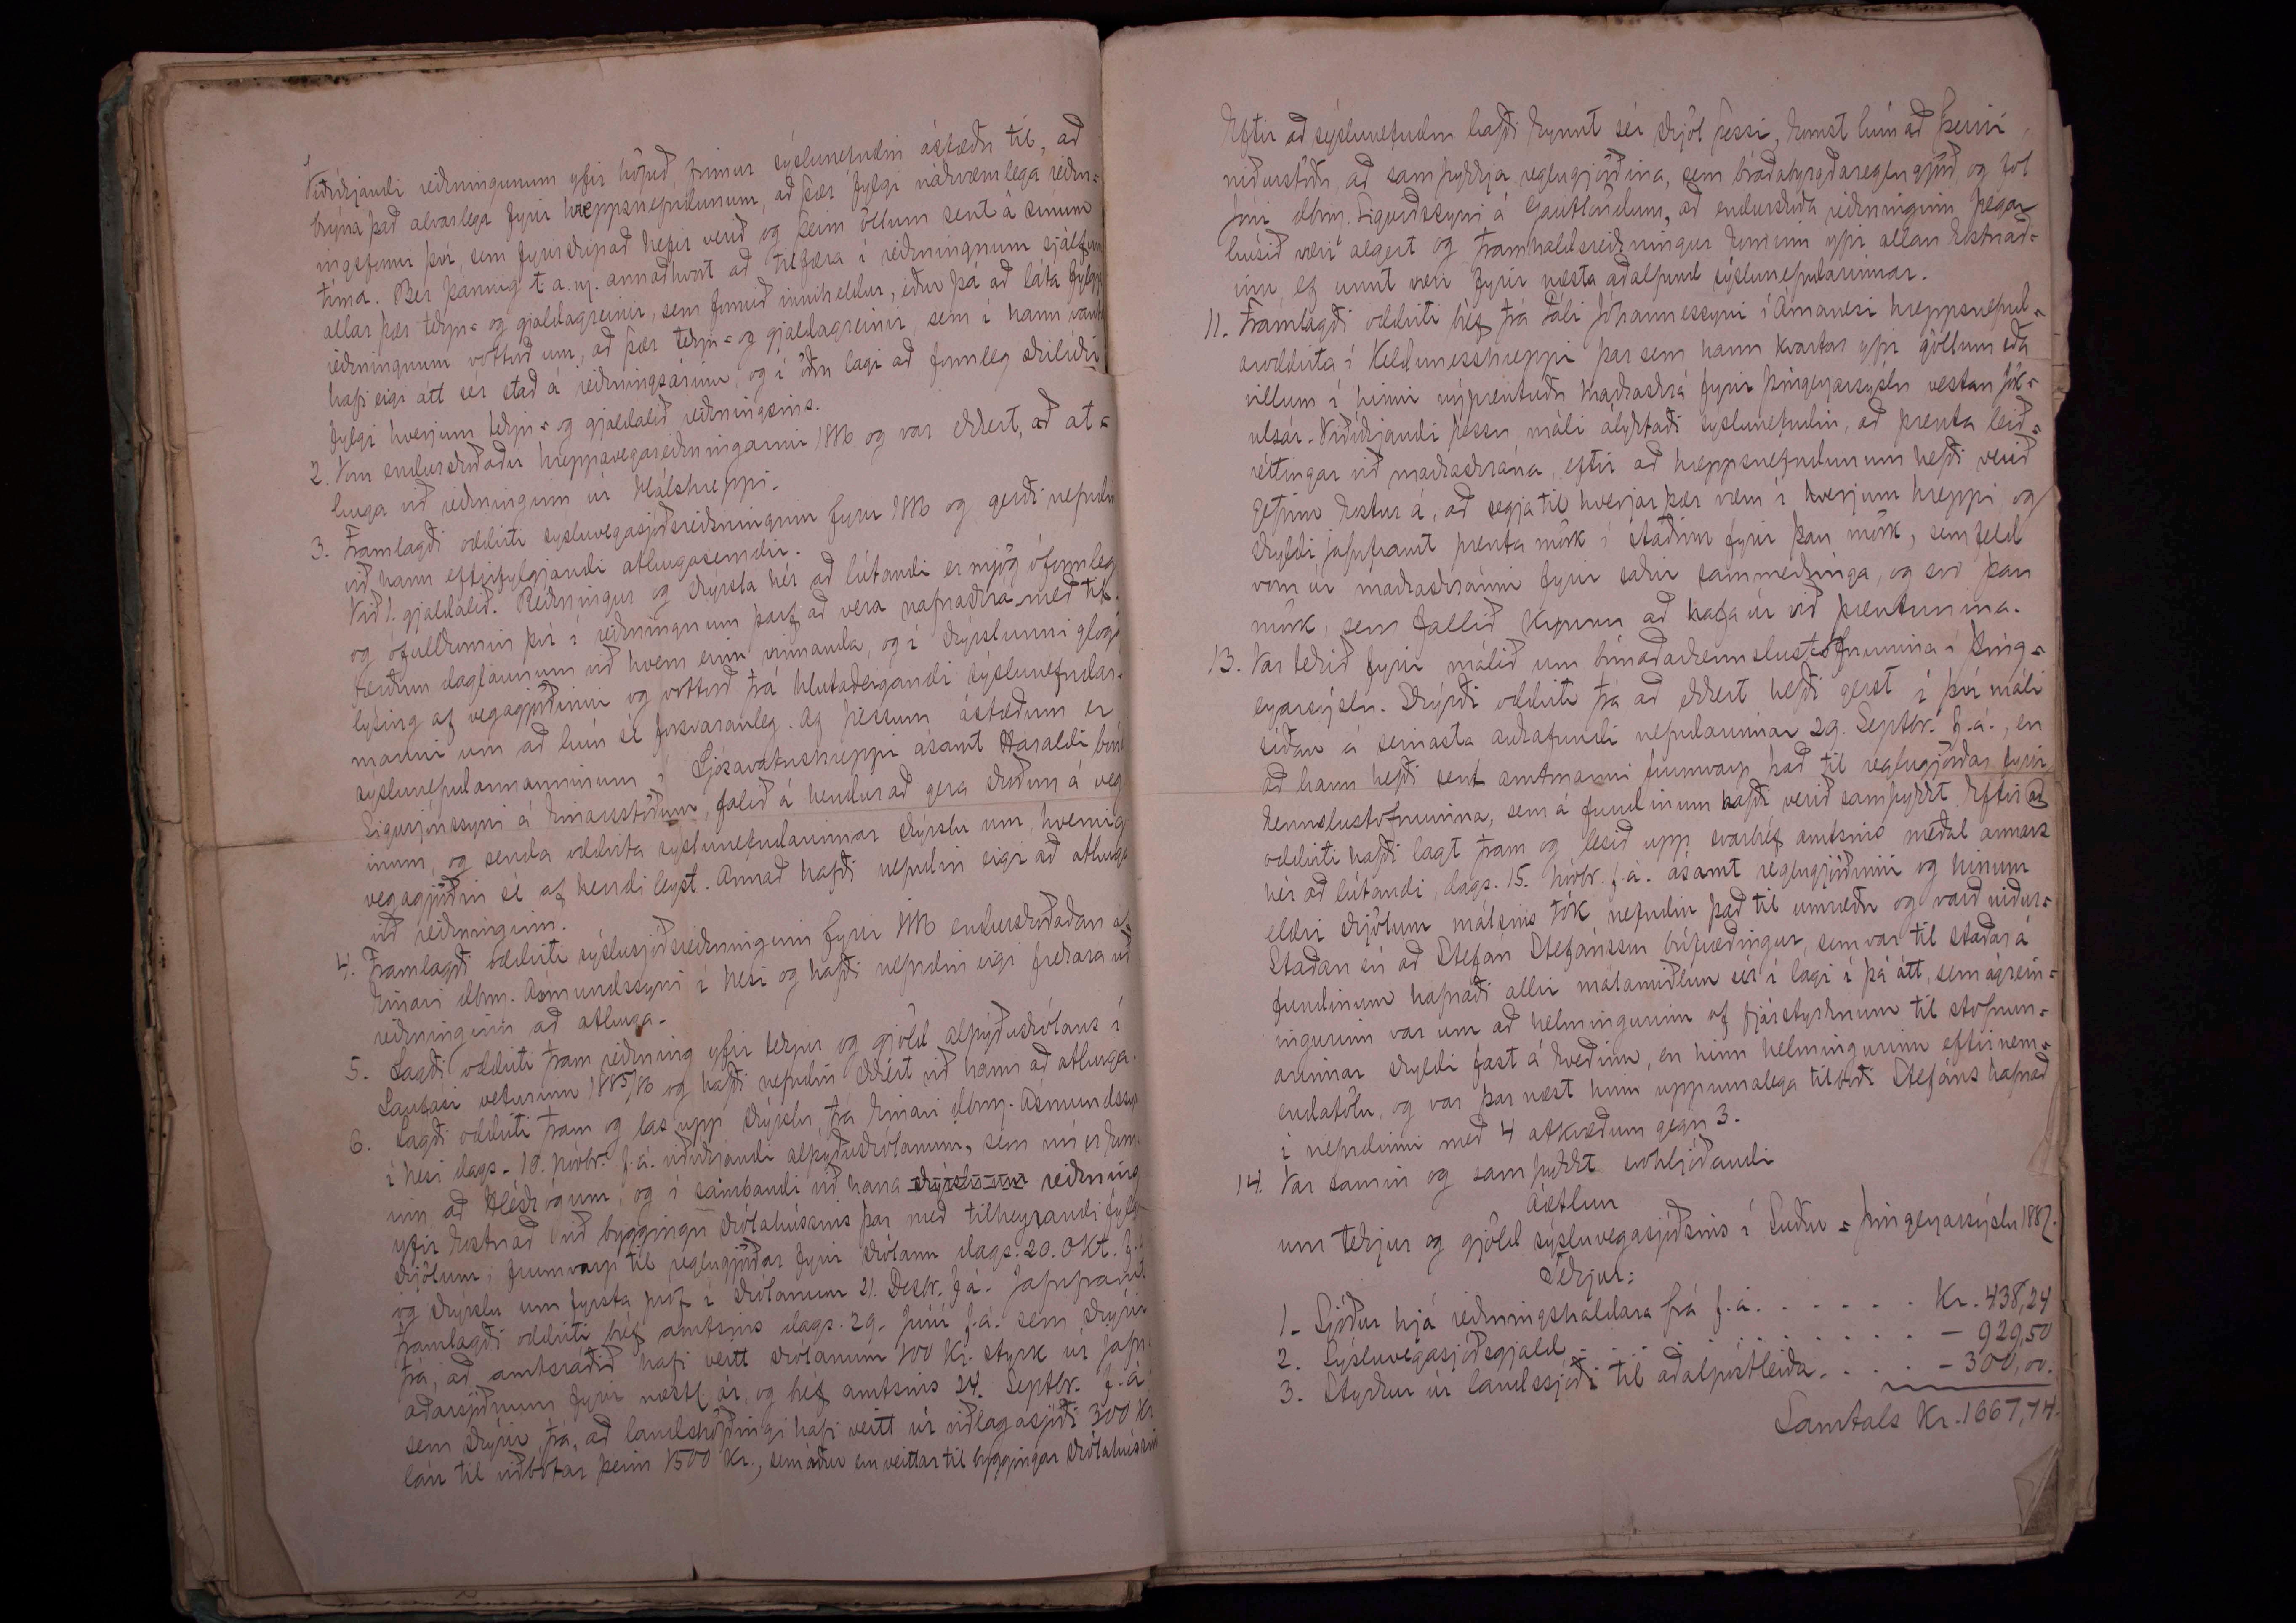 Viðvíkjandi reikningunum yfir höfuð, finnur sýslunefndin ástæðu til, að
brýna það alvarlega fyrir hreppsnefndunum, að þær fylgi nákvæmlega reikn-
ingsformi því, sem fyrirskipað hefir verið og þeim öllum sent á sínum
tíma. Ber þannig t.a.m. annaðhvort að tilfæra í reikningnum sjálfum
allar þær tekju- og gjaldagreinir, sem formið inniheldur, eður þá að láta fylgja
reikningnum vottorð um, að þær tekju- og gjaldagreinir, sem í hann vanta
hafi eigi átt sér stað á reikningsárinu, og í öðru lagi að formleg skilríki
fylgi hverjum tekju- og gjaldalið reikningsins.
2. Voru endurskoðaðir hreppavegareikningarnir 1886 og var ekkert, að at-
huga við reikninginn úr Hálshreppi.
3. Framlagði oddviti sýsluvegasjóðsreikninginn fyrir 1886 og gerði nefndin
við hann eftirfylgjandi athugasemdir.
Við 1. gjaldalið. Reikningur og skýrsla hér að lútandi er mjög óformleg
og ófullkomin því í reikningnum þarf að vera nafnaskrá með til-
færðum daglaunum við hvern einn vinnanda, og í skýrslunni glögg
lýsing af vegagjörðinni og vottorð frá hlutaðeigandi sýslunefndar-
manni um að hún sé forsvaranleg. Af þessum ástæðum er
sýslunefndarmanninum í Ljósavatnshreppi ásamt Haraldi bónda
Sigurjónssyni á Einarsstöðum, falið á hendur að gera skoðun á veg-
inum, og senda oddvita sýslunefndarinnar skýrslu um, hvernig
vegagjörðin sé af hendi leyst. Annað hafði nefndin eigi að athuga
við reikninginn.
4. Framlagði oddviti sýslusjóðsreikninginn fyrir 1886 endurskoðaðan af
Einari dbrm. Ásmundssyni í Nesi og hafði nefndin eigi frekara við
reikninginn að athuga.
5. Lagði oddviti fram reikning yfir tekjur og gjöld alþýðuskólans í
Laufási veturinn 1885/86 og hafði nefndin ekkert við hann að athuga.
6. Lagði oddviti fram og las upp skýrslu, frá Einari dbrm. Ásmundssyni
í Nesi dags. 18. Nóvbr. f.á. viðvíkjandi alþýðuskólanum, sem nú er kom-
inn að Hléskógum, og í sambandi við hana skýrslu um reikning
yfir kostnað við byggingu skólahússins þar með tilheyrandi fylgi-
skjölum, frumvarp til reglugjörðar fyrir skólann dags. 20. Okt. f.á.
og skýrslu um fyrsta próf í skólanum 21. Desbr. f.á. Jafnframt
framlagði oddviti bréf amtsins dags. 29. Júní f.á. sem skýrir
frá, að amtsráðið hafi veitt skólanum 100 Kr. styrk úr jafn-
aðarsjóðnum fyrir næstl ár, og bréf amtsins 24. Septbr. f.á
sem skýrir frá, að landshöfðingi hafi veitt úr viðlagasjóði 300 Kr
lán til viðbótar þeim 1500 Kr., sem áður eru veittar til byggingar skólahússins
Eftir að sýslunefndin hafði kynnt sér skjöl þessi, komst hún að þeirri
niðurstöðu að samþykkja reglugjörðina, sem bráðabyrgðareglugjörð og fól
Jóni dbrm. Sigurðssyni á Gautlöndum, að endurskoða reikninginn þegar
húsið væri algert og framhaldsreikningur kominn yfir allan kostnað-
inn ef unnt væri fyrir næsta aðalfund sýslunefndarinnar.
11. Framlagði oddviti bréf frá Páli Jóhannessyni í Ámanesi hreppsnefnd-
aroddvita í Keldunesshreppi þar sem hann kvartar yfir göllum eða
villum í hinni nýprentuðu markaskrá fyrir Þingeyjarsýslu vestan Jök-
ulsár. Viðvíkjandi þessu máli ályktaði sýslunefndin, að prenta leið-
réttingar við markaskrána, eftir að hreppsnefndunum hefði verið
gefinn kostur á, að segja til hverjar þær væru í hverjum hreppi og
skyldi jafnframt prenta mörk í staðinn fyrir þau mörk, sem feld
voru úr markaskránni fyrir sakir sammerkinga, og svo þau
mörk, sem fallið kynnu að hafa úr við prentunina.
13. Var tekið fyrir málið um búnaðarkennslustofnunina í Þing-
eyjarsýslu. Skýrði oddviti frá að ekkert hefði gerst í því máli
síðan á seinasta aukafundi nefndarinnar 29. Septbr. f.á., en
að hann hefði sent amtmanni frumvarp það til reglugjörðar fyrir
kennslustofnunina, sem á fundinum hafði verið samþykkt. Eftir að
oddviti hafði lagt fram og lesið upp svarbréf amtsins meðal annars
hér að lútandi, dags. 15. Nóvbr. f.á. ásamt reglugjörðinni og hinum
eldri skjölum málsins tók nefndin það til umræðu og varð niður-
staðan sú að Stefán Stefánsson búfræðingur, sem var til staðar á
fundinum hafnaði allri málamiðlun sér í lagi í þá átt, sem ágrein-
ingurinn var um að helmingurinn af fjárstyrknum til stofnun-
arinnar skyldi fast á kveðinn, en hinn helmingurinn eftir nem-
endatölu, og var þar næst hinu upprunalega tilboði Stefáns hafnað
í nefndinni með 4 atkvæðum gegn 3.
14. Var samin og samþykkt svohljóðandi
Áætlun
um tekjur og gjöld sýsluvegasjóðsins í Suður-Þingeyjarsýslu 1887.
Tekjur:
1. Sjóður hjá reikningshaldara frá f.á. . . . . . . Kr. 438,24
2. Sýsluvegasjóðsgjald . . . . . . . . . . . - 929,50
3. Styrkur úr landssjóði til aðalpóstleiða. . . . . - 300,00.
Samtals Kr. 1667,74.